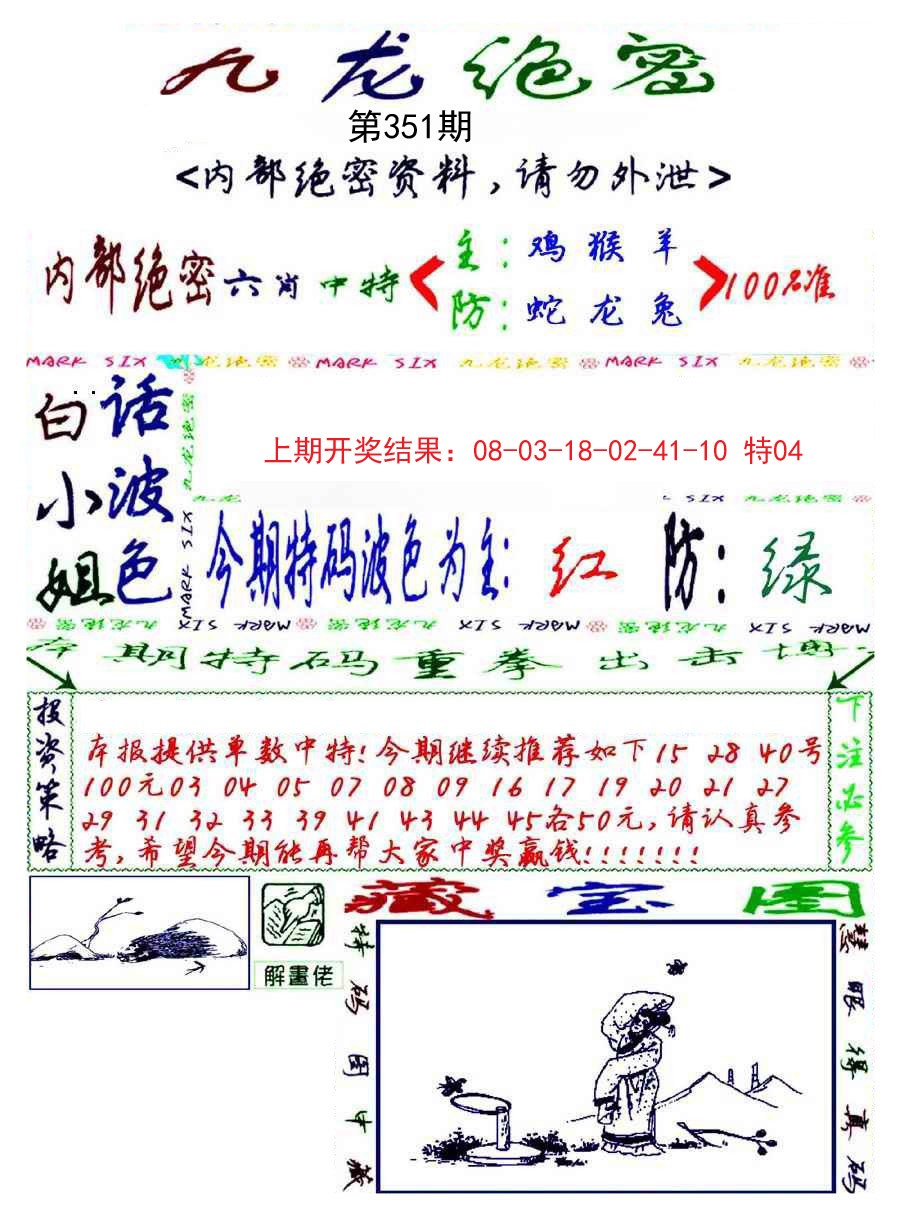 九龙绝密
第351期
<内部绝密资料,请勿外泄>
内部绝密六肖中特
主:鸡猴羊
防:蛇龙兔
100%准
MARK SIX 九龙绝密 MARK SIX 九龙绝密 MARK SIX 九龙绝密
白小姐
话波色
九龙绝密
MARK SIX
上期开奖结果：08-03-18-02-41-10 特04
九龙
SIX 九龙绝密
今期特码波色为主:红 防:绿
九龙绝密 MARK SIX 九龙绝密 MARK SIX 九龙绝密 MARK SIX
本期特码重拳出击
投资策略
本报提供单数中特!今期继续推荐如下15 28 40号
100元03 04 05 07 08 09 16 17 19 20 21 27
29 31 32 33 39 41 43 44 45各50元,请认真参
考,希望今期能再帮大家中奖赢钱!!!!!!!
下注必参
解畫佬
藏宝图
特码图中藏
慧眼得真码